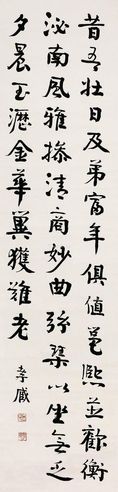 昔吾壮日及弟富年俱值邕熙並歡衡
泌南風雅操清商妙曲弦琴以坐無乏
夕晨玉瀝金華冀獲難老
孝臧